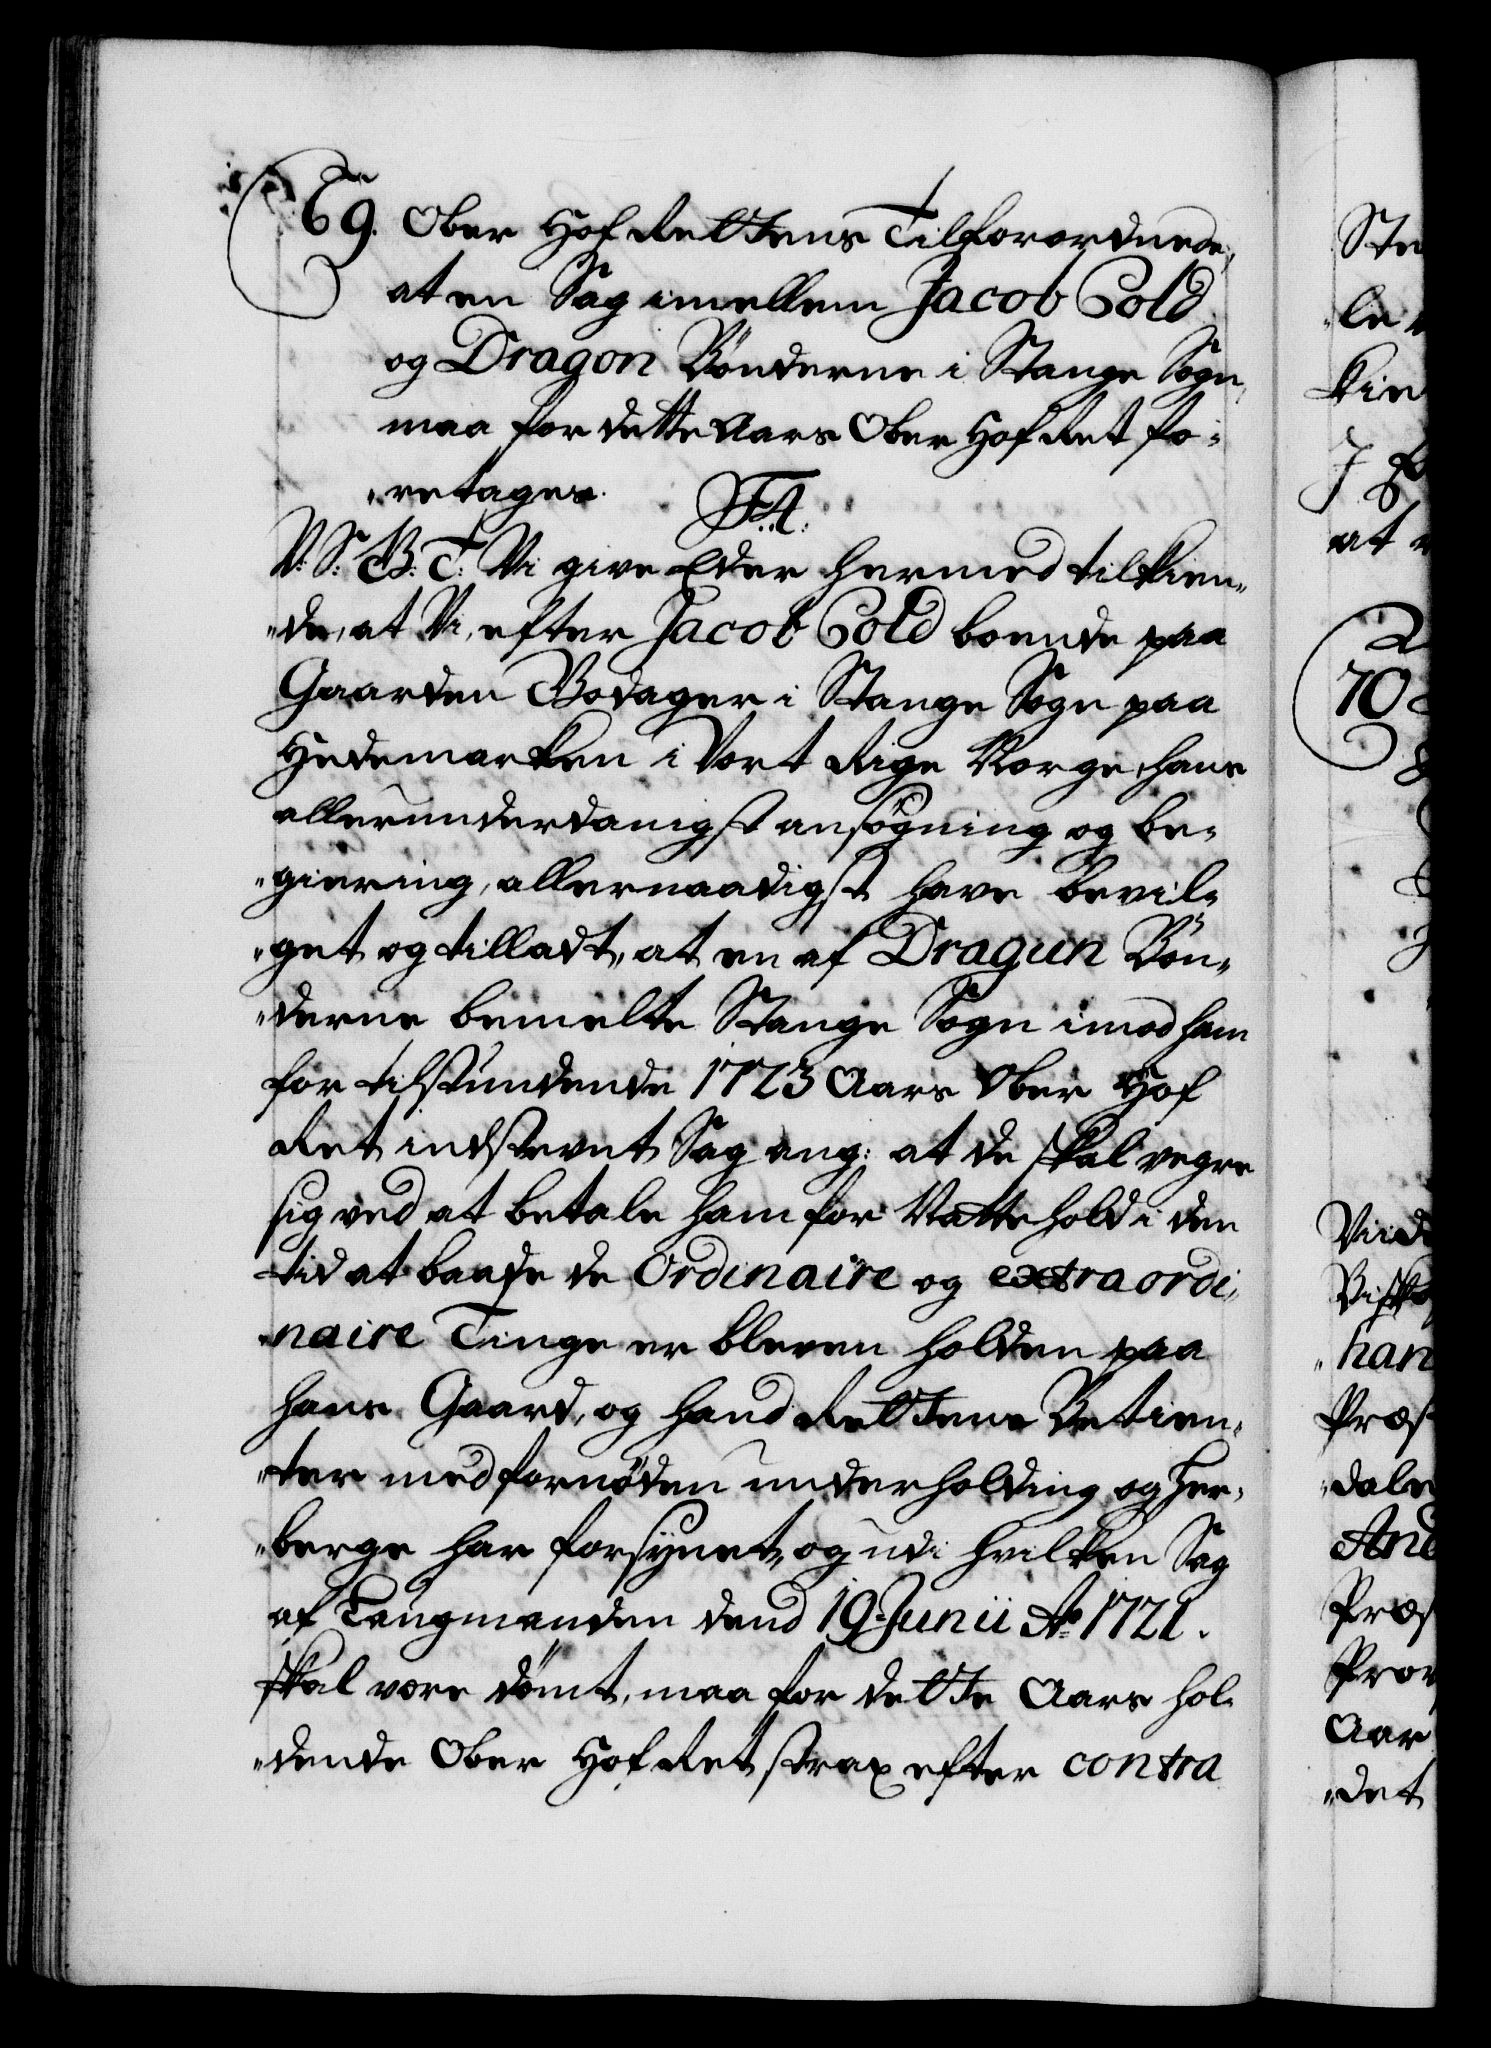 69. Ober Hof Rettens Tilforordnede,
at en Sag imellem Jacob Cold
og Dragon Bönderne i Stange Sogn,
maa for dette Aars Ober Hof Ret fo-
"retages. F.4.
V: S: B: T: Vi give Eder hermed tilkien-
"de, at Vi, efter Jacob Cold boende paa
Gaarden Bodager i Stange Sogn paa
Hedemarken i Vort Rige Norge, hans
allerunderdanigst ansögning og be-
"giering, allernaadigst have bevil-
"get og tilladt, at en af Dragun Bön-
"derne bemelte Stange Sogn imod ham
for tilstundende 1723 Aars Ober Hof
Ret indstevnt Sag ang: at de skal vegre
sig ved at betale ham for Natteholdi den
tid at baade de Ordinaire og extraordi-
"naire Tinge er bleven holden paa
hans Gaard, og hand Rettens Betien-
"ter med fornöden underholding og Her-
"berge har forsÿnet, og udi hvilken Sag
af Laugmanden dend 19 Junii Ao 1721.
skal være dömt, maa for dette Aars hol-
"dende Ober Hof Ret strax efter contra
Ste
"le
kie
at
70
Viid
Bisko
"han
Præs
"dale
And
Præs
Prov
Aar
"det